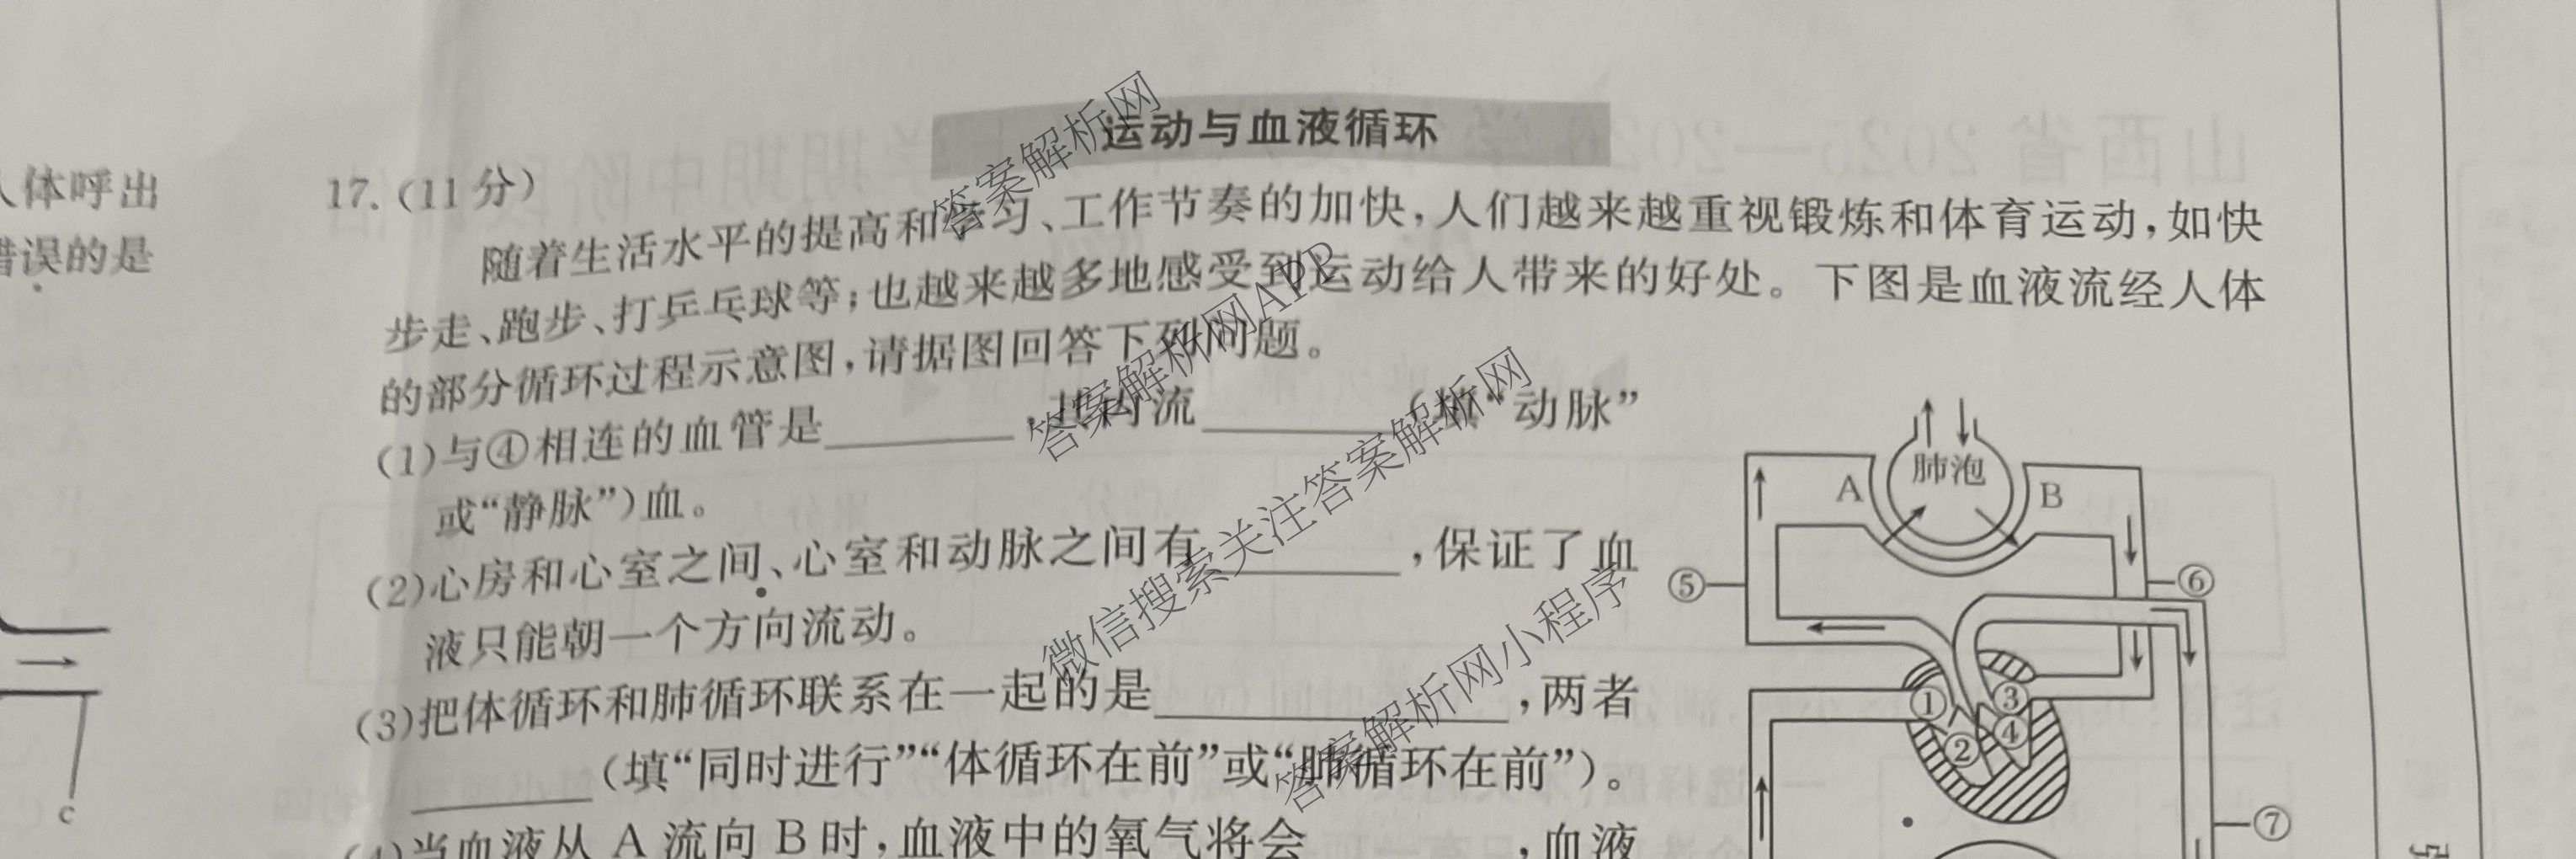 人体呼出
错误的是
c
运动与血液循环
17.(11分)
随着生活水平的提高和学习、工作节奏的加快,人们越来越重视锻炼和体育运动,如快
步走、跑步、打乒乓球等;也越来越多地感受到运动给人带来的好处。下图是血液流经人体
的部分循环过程示意图,请据图回答下列问题。
(1)与④相连的血管是________,其内流________(填“动脉”
或“静脉”)血。
(2)心房和心室之间、心室和动脉之间有________,保证了血
液只能朝一个方向流动。
(3)把体循环和肺循环联系在一起的是________,两者
________(填“同时进行”“体循环在前”或“肺循环在前”)。
(4)当血液从A流向B时,血液中的氧气将会________,血液
肺泡
A
B
⑤
⑥
①
③
②
④
⑦
答案解析网
答案解析网APP
微信搜索关注答案解析网
答案解析网小程序